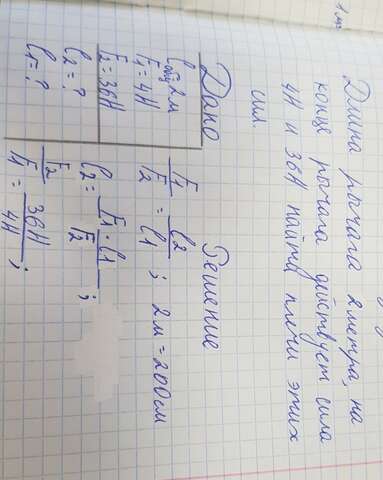 1 м
Длина рычага 2 метра, на
конце рычага действует сила
4Н и 36Н найти плечи этих
сил.
Дано
lобщ 2м
F1 = 4Н
F2 = 36Н
l2 = ?
l1 = ?
Решение
F1/F2 = l2/l1 ; 2м = 200см
l2 = F1 · l1/F2 ;
F2/F1 = 36Н/4Н ;